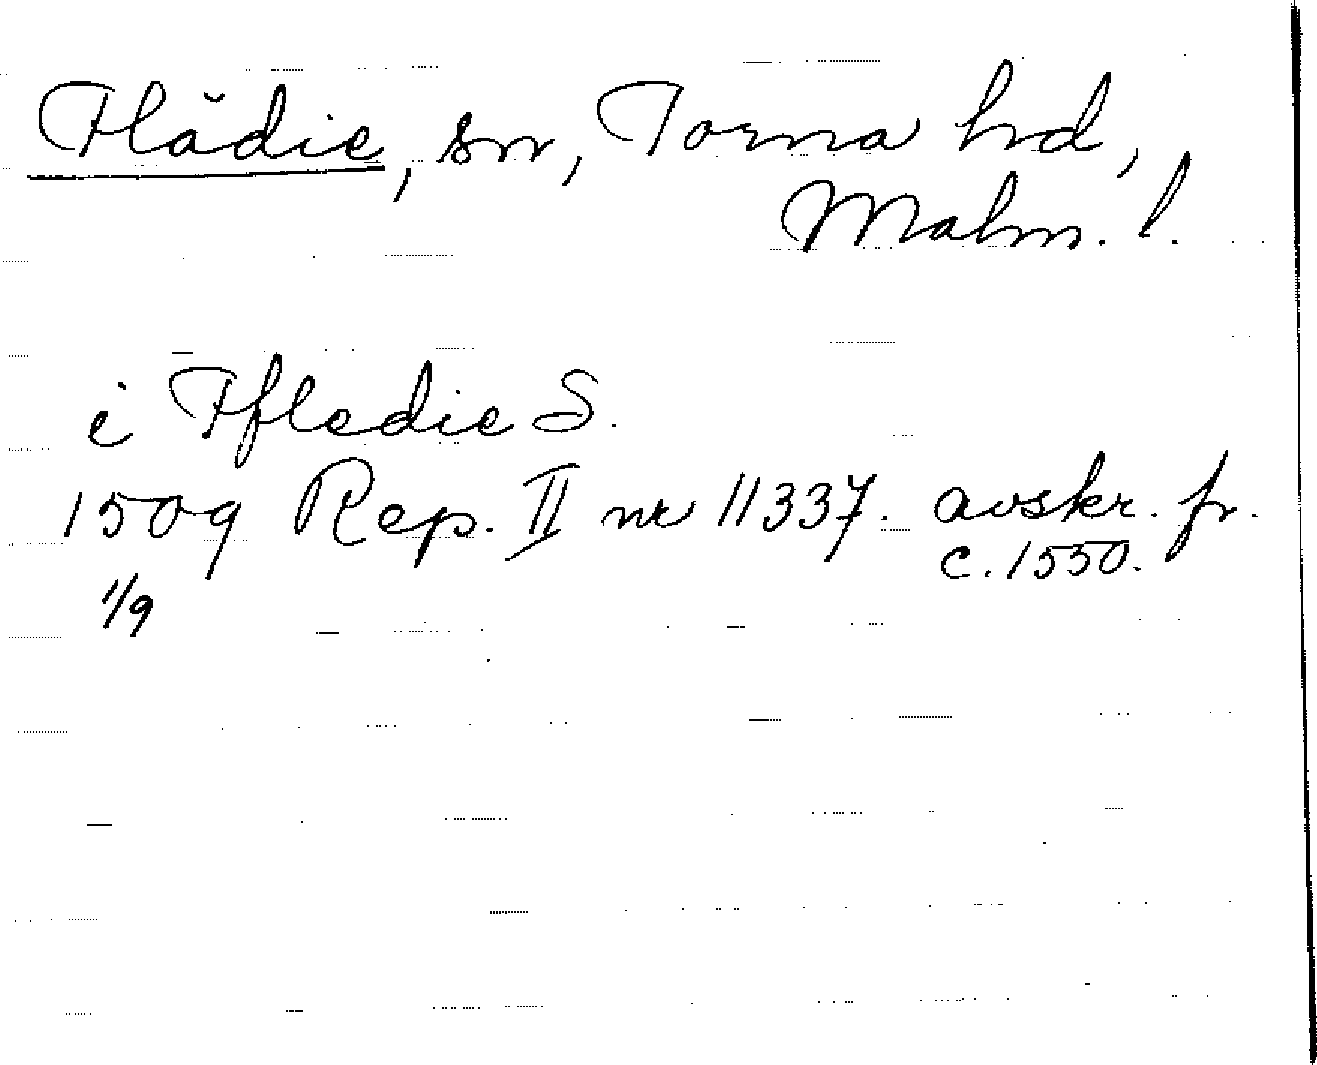 Flädie, sn, Torna hd,
Malm. l.
i Ffledie S.
1509 Rep. II nr 11337. avskr. fr.
c. 1550.
1/9